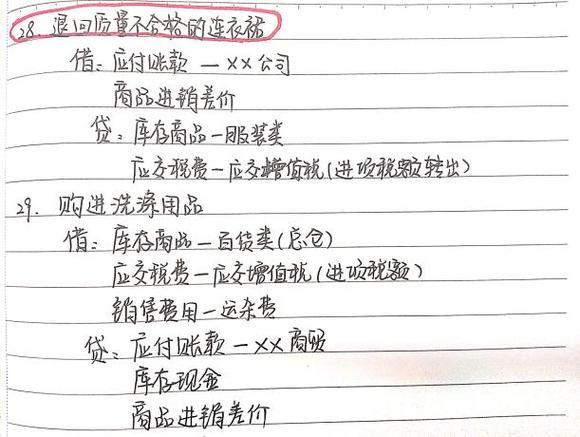 28. 退回质量不合格的连衣裙
借：应付账款 — ××公司
商品进销差价
贷：库存商品 — 服装类
应交税费 — 应交增值税（进项税额转出）
29. 购进洗涤用品
借：库存商品 — 百货类（总仓）
应交税费 — 应交增值税（进项税额）
销售费用 — 运杂费
贷：应付账款 — ××商贸
库存现金
商品进销差价